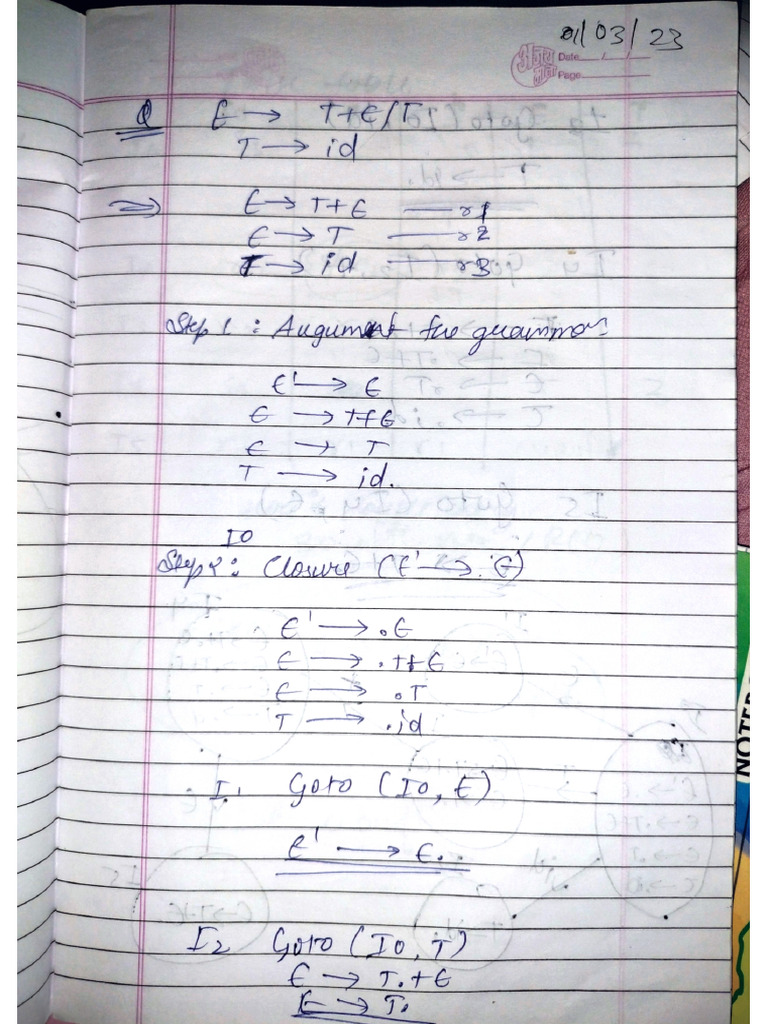 01/03/23
Date
Page
Q E → T+E/T
T → id
⇒ E → T+E — r1
E → T — r2
T → id — r3
Step 1 : Augument the grammar:
E' → E
E → T+E
E → T
T → id.
I0
Step 2 : Closure (E' → .E)
E' → .E
E → .T+E
E → .T
T → .id
I1 Goto (I0, E)
E' → E..
I2 Goto (I0, T)
E → T.+E
E → T.
NOTEB